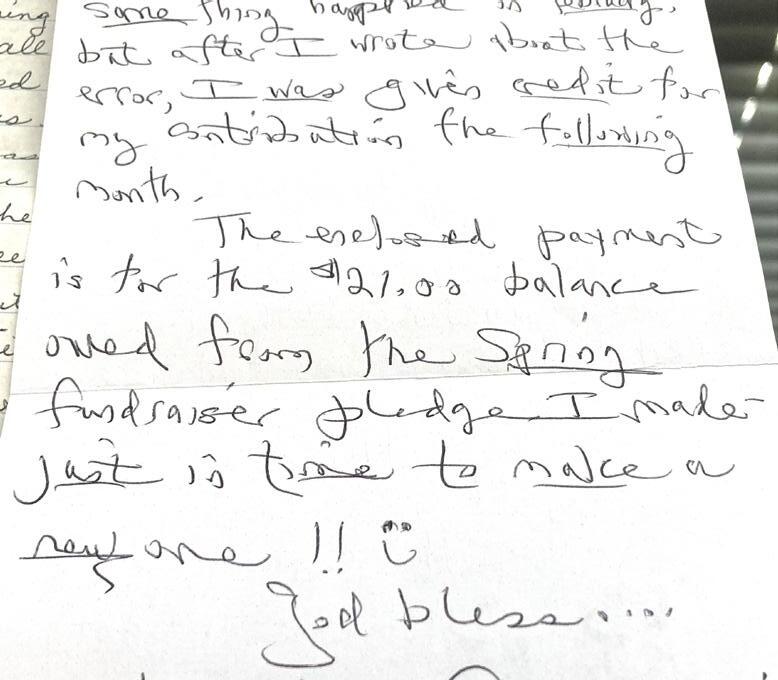 same thing happened in February,
but after I wrote about the
error, I was given credit for
my contribution the following
month.
The enclosed payment
is for the $21.00 balance
owed from the Spring
fundraiser pledge I made-
just in time to make a
new one !!
God bless....
ing
all
ed
s.
as
he
ee